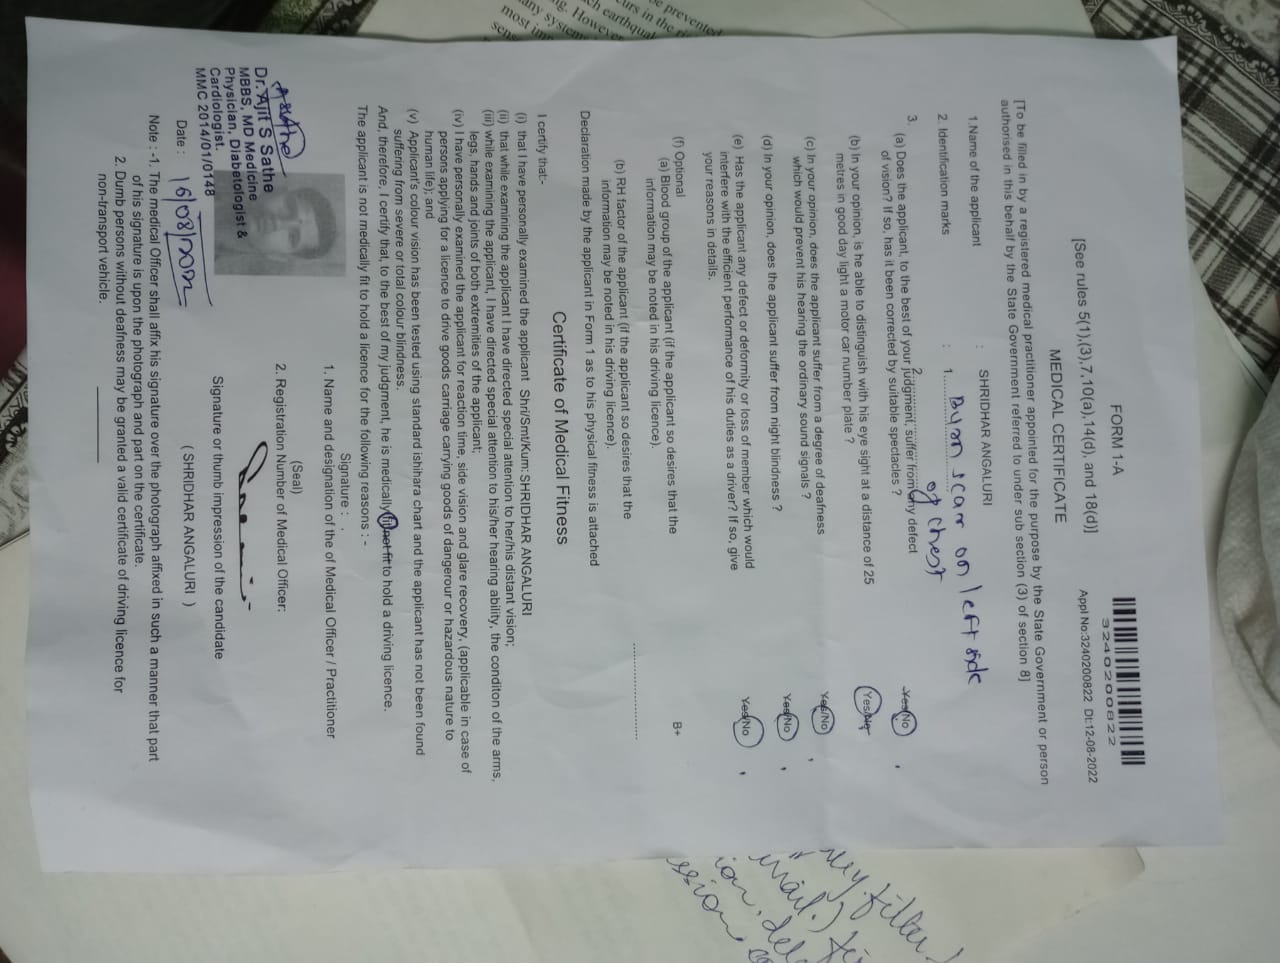 FORM 1-A
3240200822
[See rules 5(1),(3),7,10(a),14(d), and 18(d)]
Appl No:3240200822 Dt:12-08-2022
MEDICAL CERTIFICATE
[To be filled in by a registered medical practitioner appointed for the purpose by the State Government or person
authorised in this behalf by the State Government referred to under sub section (3) of section 8]
1.Name of the applicant : SHRIDHAR ANGALURI
2. Identification marks : 1. Burn scar on left side
of chest
2.
3.
(a) Does the applicant, to the best of your judgment, suffer from any defect Yes/No
of vision? If so, has it been corrected by suitable spectacles ?
(b) In your opinion, is he able to distinguish with his eye sight at a distance of 25 Yes/No
metres in good day light a motor car number plate ?
(c) In your opinion, does the applicant suffer from a degree of deafness Yes/No
which would prevent his hearing the ordinary sound signals ?
(d) In your opinion, does the applicant suffer from night blindness ? Yes/No
(e) Has the applicant any defect or deformity or loss of member which would Yes/No
interfere with the efficient performance of his duties as a driver? If so, give
your reasons in details.
(f) Optional
(a) Blood group of the applicant (if the applicant so desires that the B+
information may be noted in his driving licence).
(b) RH factor of the applicant (if the applicant so desires that the
information may be noted in his driving licence).
Declaration made by the applicant in Form 1 as to his physical fitness is attached
Certificate of Medical Fitness
I certify that:-
(i) that I have personally examined the applicant Shri/Smt/Kum: SHRIDHAR ANGALURI
(ii) that while examining the applicant I have directed special attention to her/his distant vision;
(iii) while examining the applicant, I have directed special attention to his/her hearing ability, the conditon of the arms,
legs, hands and joints of both extremities of the applicant;
(iv) I have personally examined the applicant for reaction time, side vision and glare recovery, (applicable in case of
persons applying for a licence to drive goods carriage carrying goods of dangerour or hazardous nature to
human life); and
(v) Applicant's colour vision has been tested using standard ishihara chart and the applicant has not been found
suffering from severe or total colour blindness.
And, therefore, I certify that, to the best of my judgment, he is medically fit/not fit to hold a driving licence.
The applicant is not medically fit to hold a licence for the following reasons : -
Signature :
1. Name and designation of the of Medical Officer / Practitioner
(Seal)
2. Registration Number of Medical Officer:
Dr. Ajit S Sathe
MBBS, MD Medicine
Physician, Diabetologist &
Cardiologist.
MMC 2014/01/0148
Signature or thumb impression of the candidate
( SHRIDHAR ANGALURI )
Date : 16/08/2022
Note : -1. The medical Officer shall affix his signature over the photograph affixed in such a manner that part
of his signature is upon the photograph and part on the certificate.
2. Dumb persons without deafness may be granted a valid certificate of driving licence for
non-transport vehicle.